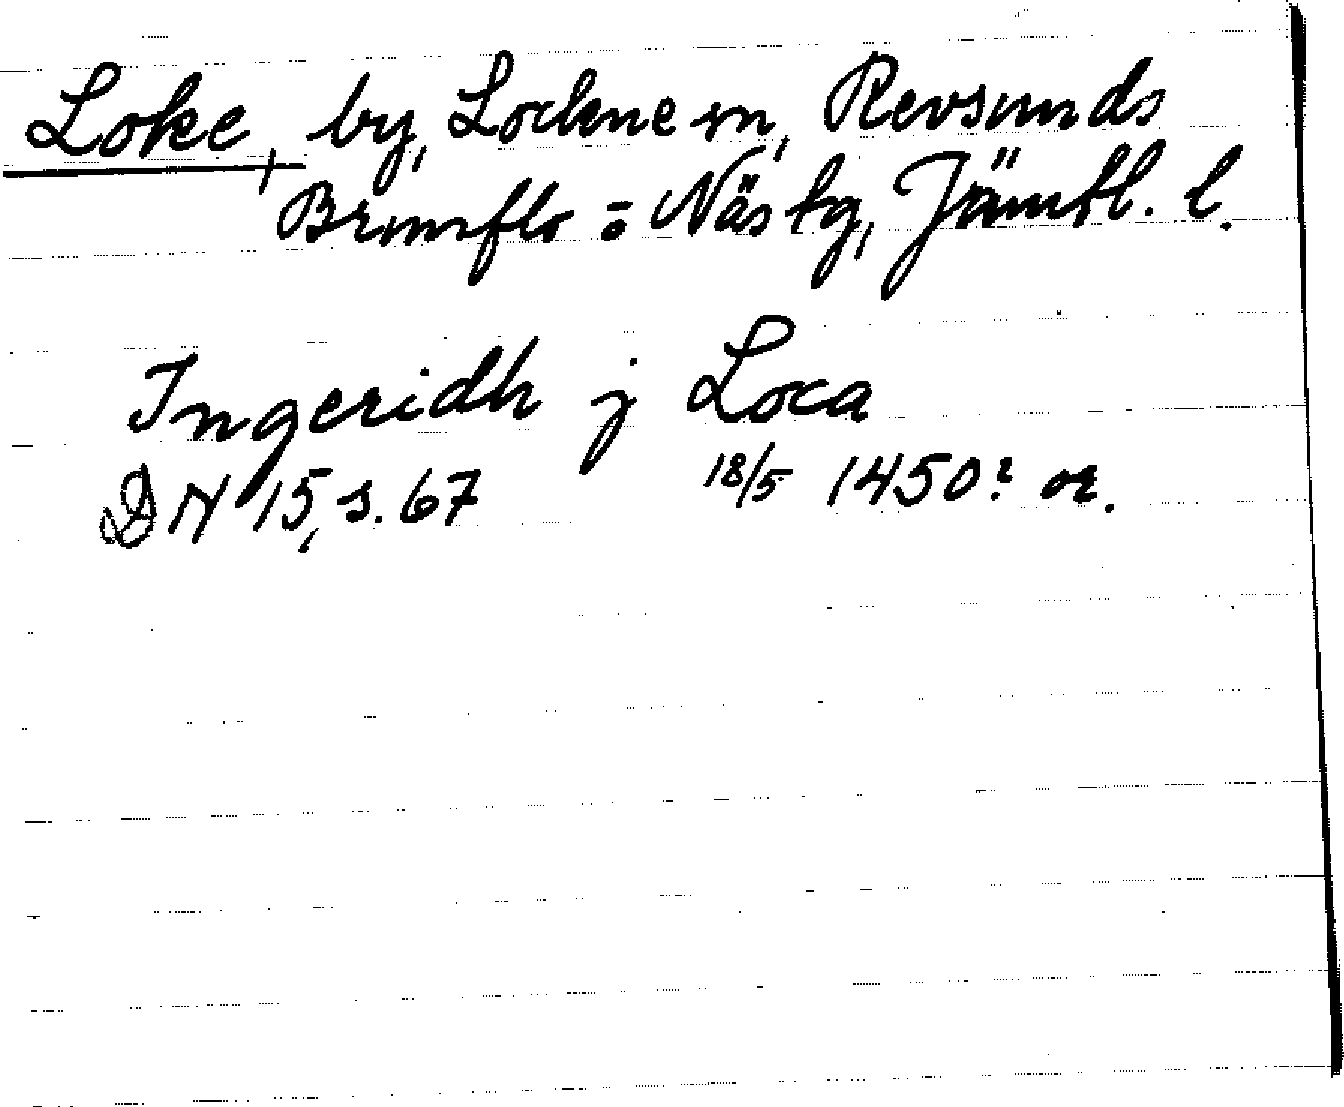 Loke, by, Lockne sn, Revsunds
Brunflo o Näs tg, Jämtl. l.
Ingeridh j Loca
DN 15, s. 67 18/5 1450? or.